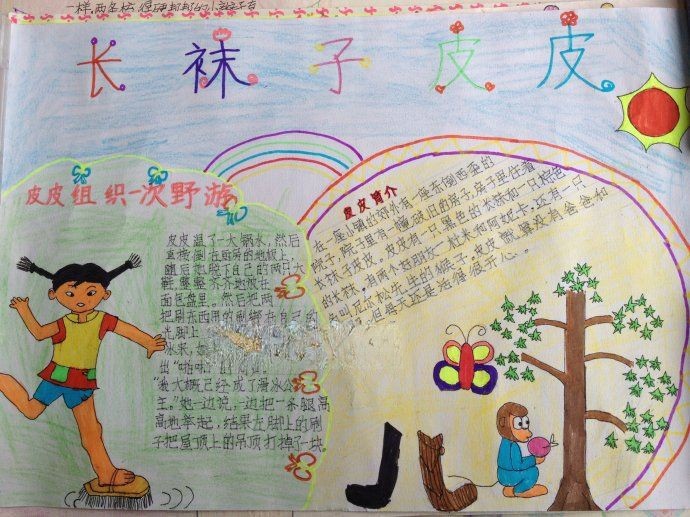 一样,两条
长袜子皮皮
皮皮组织一次野游
皮皮温了一大锅水,然后
直接倒在厨房的地板上,
随后她脱下自己的两只大
鞋,整整齐齐地放在
面包盘里。然后把两
把刷东西用的刷绑在自己的
光脚上
冰来,
出“啪啦
“我大概已经成了滑冰公
主。”她一边说,一边把一条腿高
高地举起,结果左脚上的刷
子把屋顶上的吊顶打掉了一块。
皮皮简介
在一座小镇的郊外有一座东倒西歪的
院子,院子里有一幢破旧的房子,房子里住着
长袜子皮皮。皮皮有一只黑色的长袜和一只棕色
的长袜。有两个好朋友—杜米和阿妮卡,还有一只
名叫尼尔松先生的猴子。皮皮就算没有爸爸和
,但每天还是活得很开心。